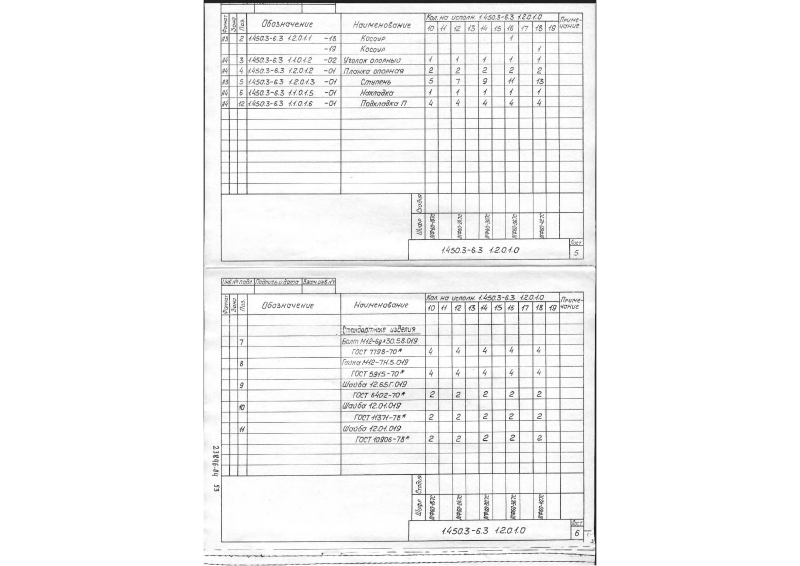 Формат Зона Поз. Обозначение Наименование Кол. на исполн. 1.450.3-6.3 1.2.0.1.0 Приме-чание
10 11 12 13 14 15 16 17 18 19
2 1.450.3-6.3 1.2.0.1.1 -18 Косоур 1
-19 Косоур 1
А4 3 1.450.3-6.3 1.1.0.1.2 -02 Уголок опорный 1 1 1 1 1
А4 4 1.450.3-6.3 1.2.0.1.2 -01 Планка опорная 2 2 2 2 2
5 1.450.3-6.3 1.2.0.1.3 -01 Ступень 5 7 9 11 13
А4 6 1.450.3-6.3 1.1.0.1.5 -01 Накладка 1 1 1 1 1
А4 12 1.450.3-6.3 1.1.0.1.6 -01 Подкладка П 4 4 4 4 4
Шифр Стадия
1.450.3-6.3 1.2.0.1.0
Лист
5
Инв.№ подл. Подпись и дата Взам.инв.№
Формат Зона Поз. Обозначение Наименование Кол. на исполн. 1.450.3-6.3 1.2.0.1.0 Приме-чание
10 11 12 13 14 15 16 17 18 19
Стандартные изделия
7 Болт М12-6gх30.58.019
ГОСТ 7798-70* 4 4 4 4 4
8 Гайка М12-7Н.5.019
ГОСТ 5915-70* 4 4 4 4 4
9 Шайба 12.65Г.019
ГОСТ 6402-70* 2 2 2 2 2
10 Шайба 12.01.019
ГОСТ 11371-78* 2 2 2 2 2
11 Шайба 12.01.019
ГОСТ 10906-78* 2 2 2 2 2
53
Шифр Стадия
1.450.3-6.3 1.2.0.1.0
Лист
6